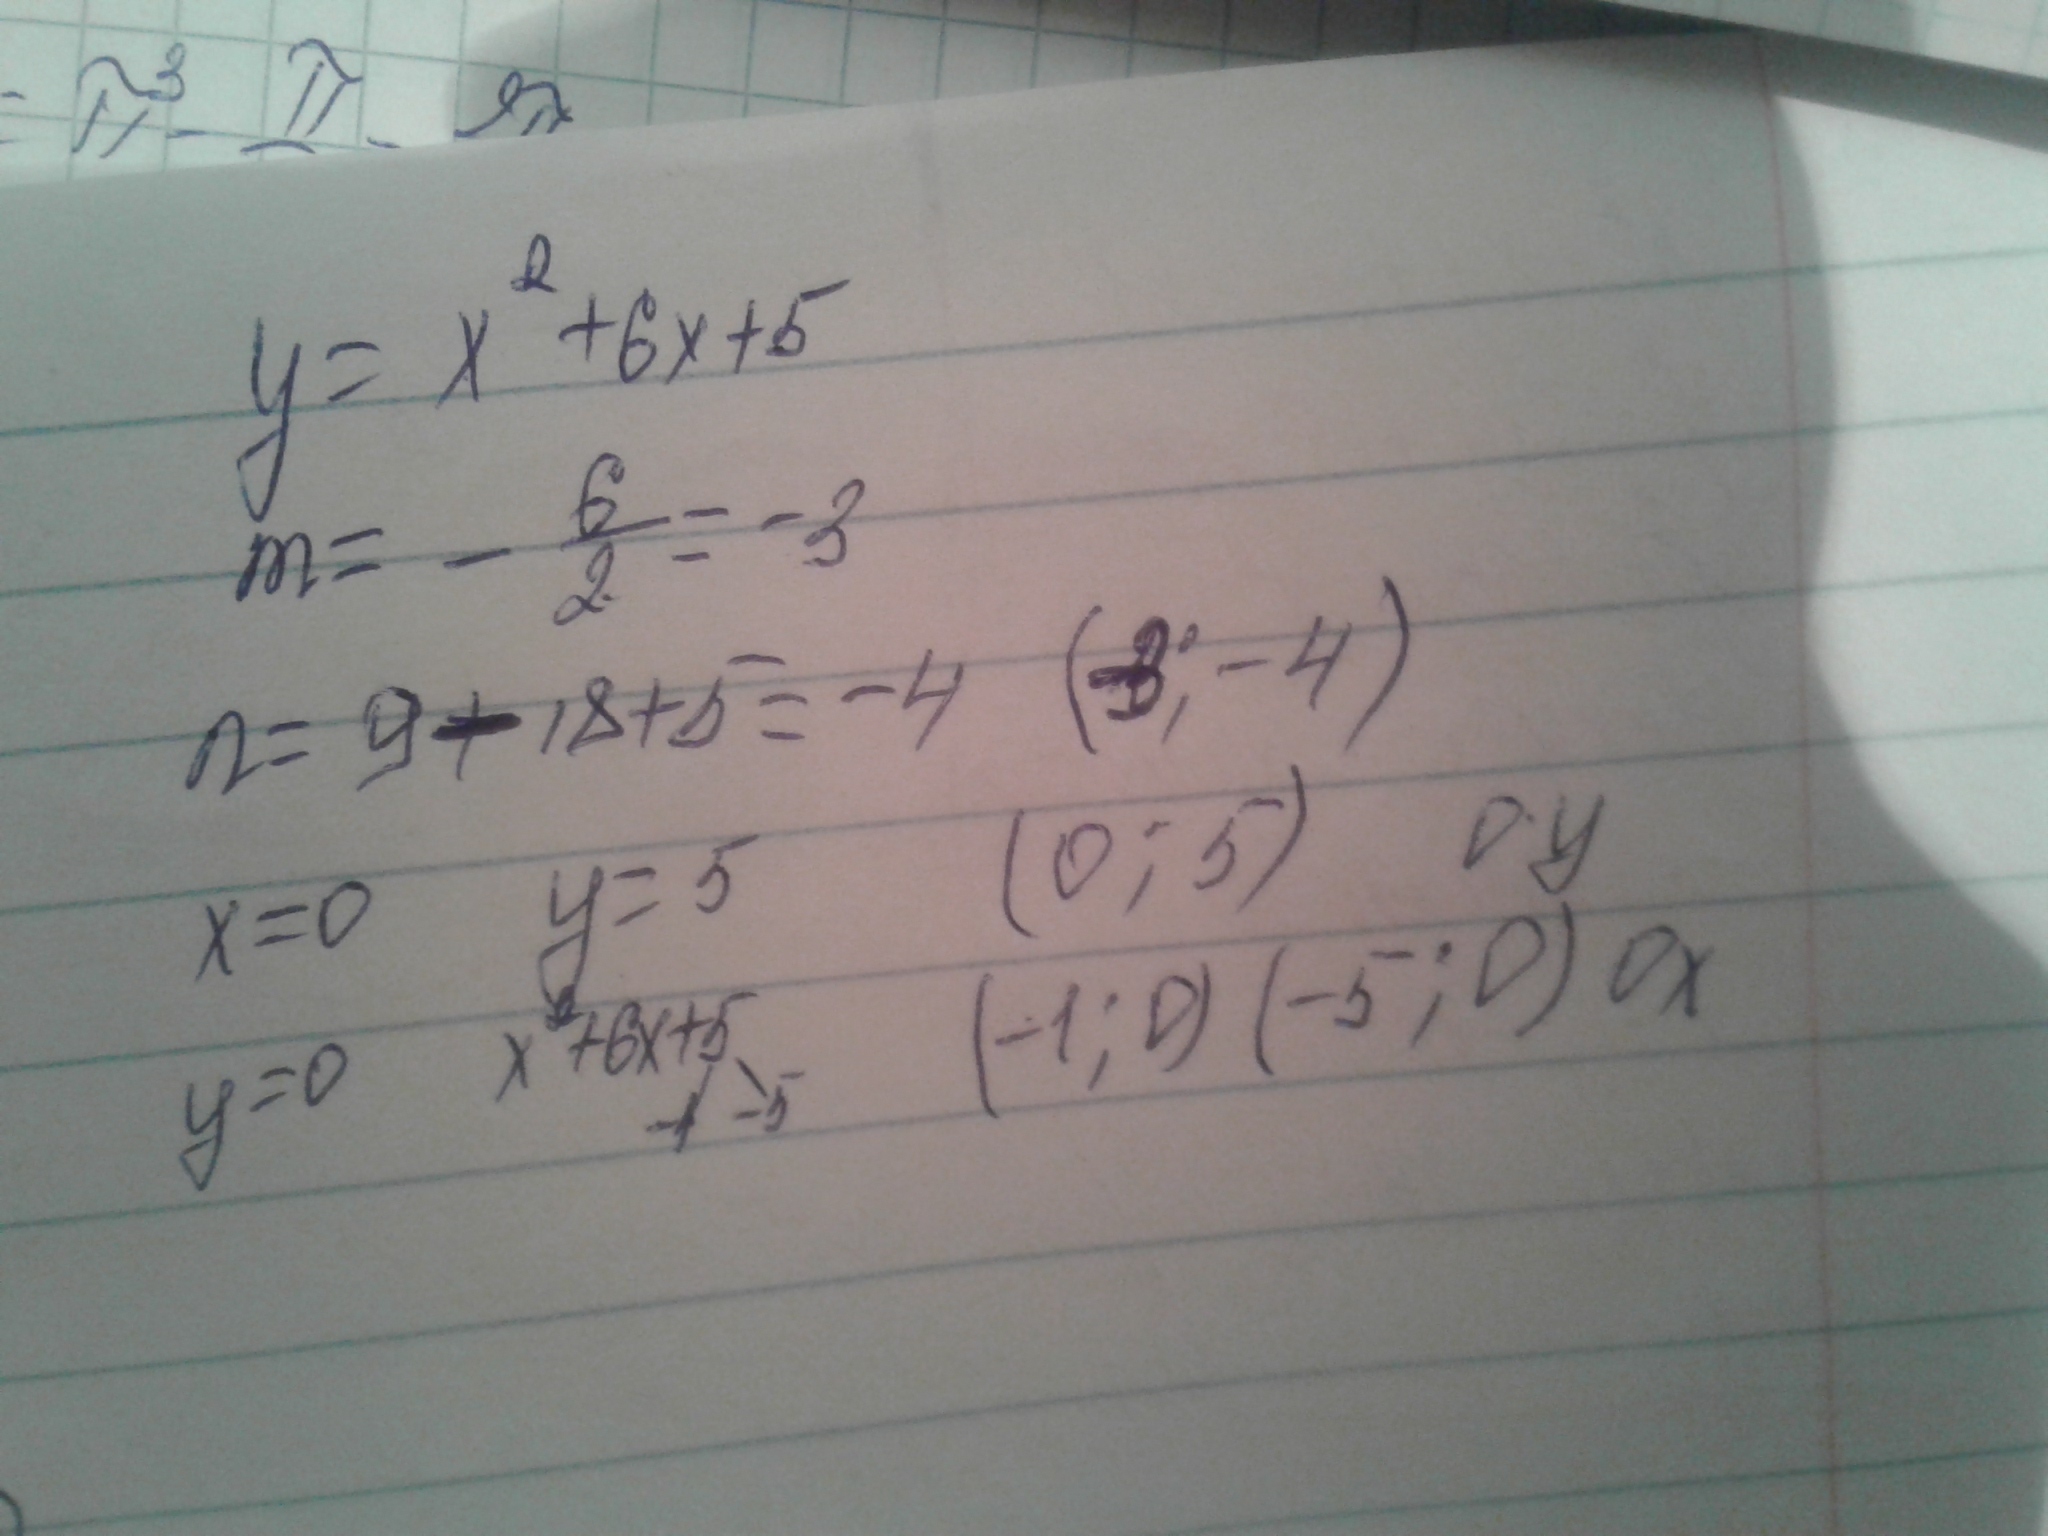 = π³ - π -
y = x² + 6x + 5
m = - 6/2 = -3
n = 9 - 18 + 5 = -4 (-3; -4)
x = 0 y = 5 (0; 5) oy
y = 0 x² + 6x + 5 (-1; 0) (-5; 0) Ox
-1 -5